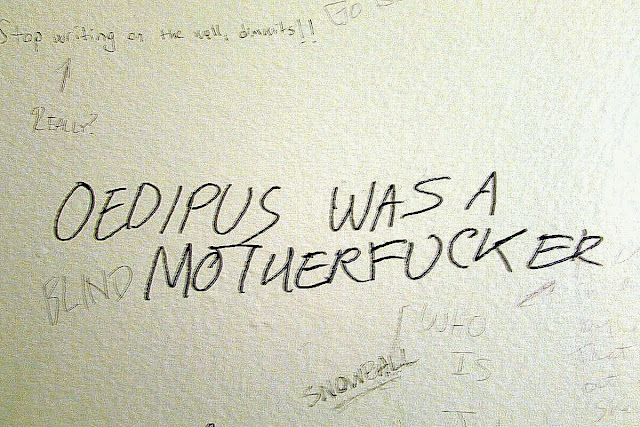 Stop writing on the wall, dimwits!!
REALLY?
OEDIPUS WAS A
BLIND MOTHERFUCKER
"WHO
IS
SNOWBALL